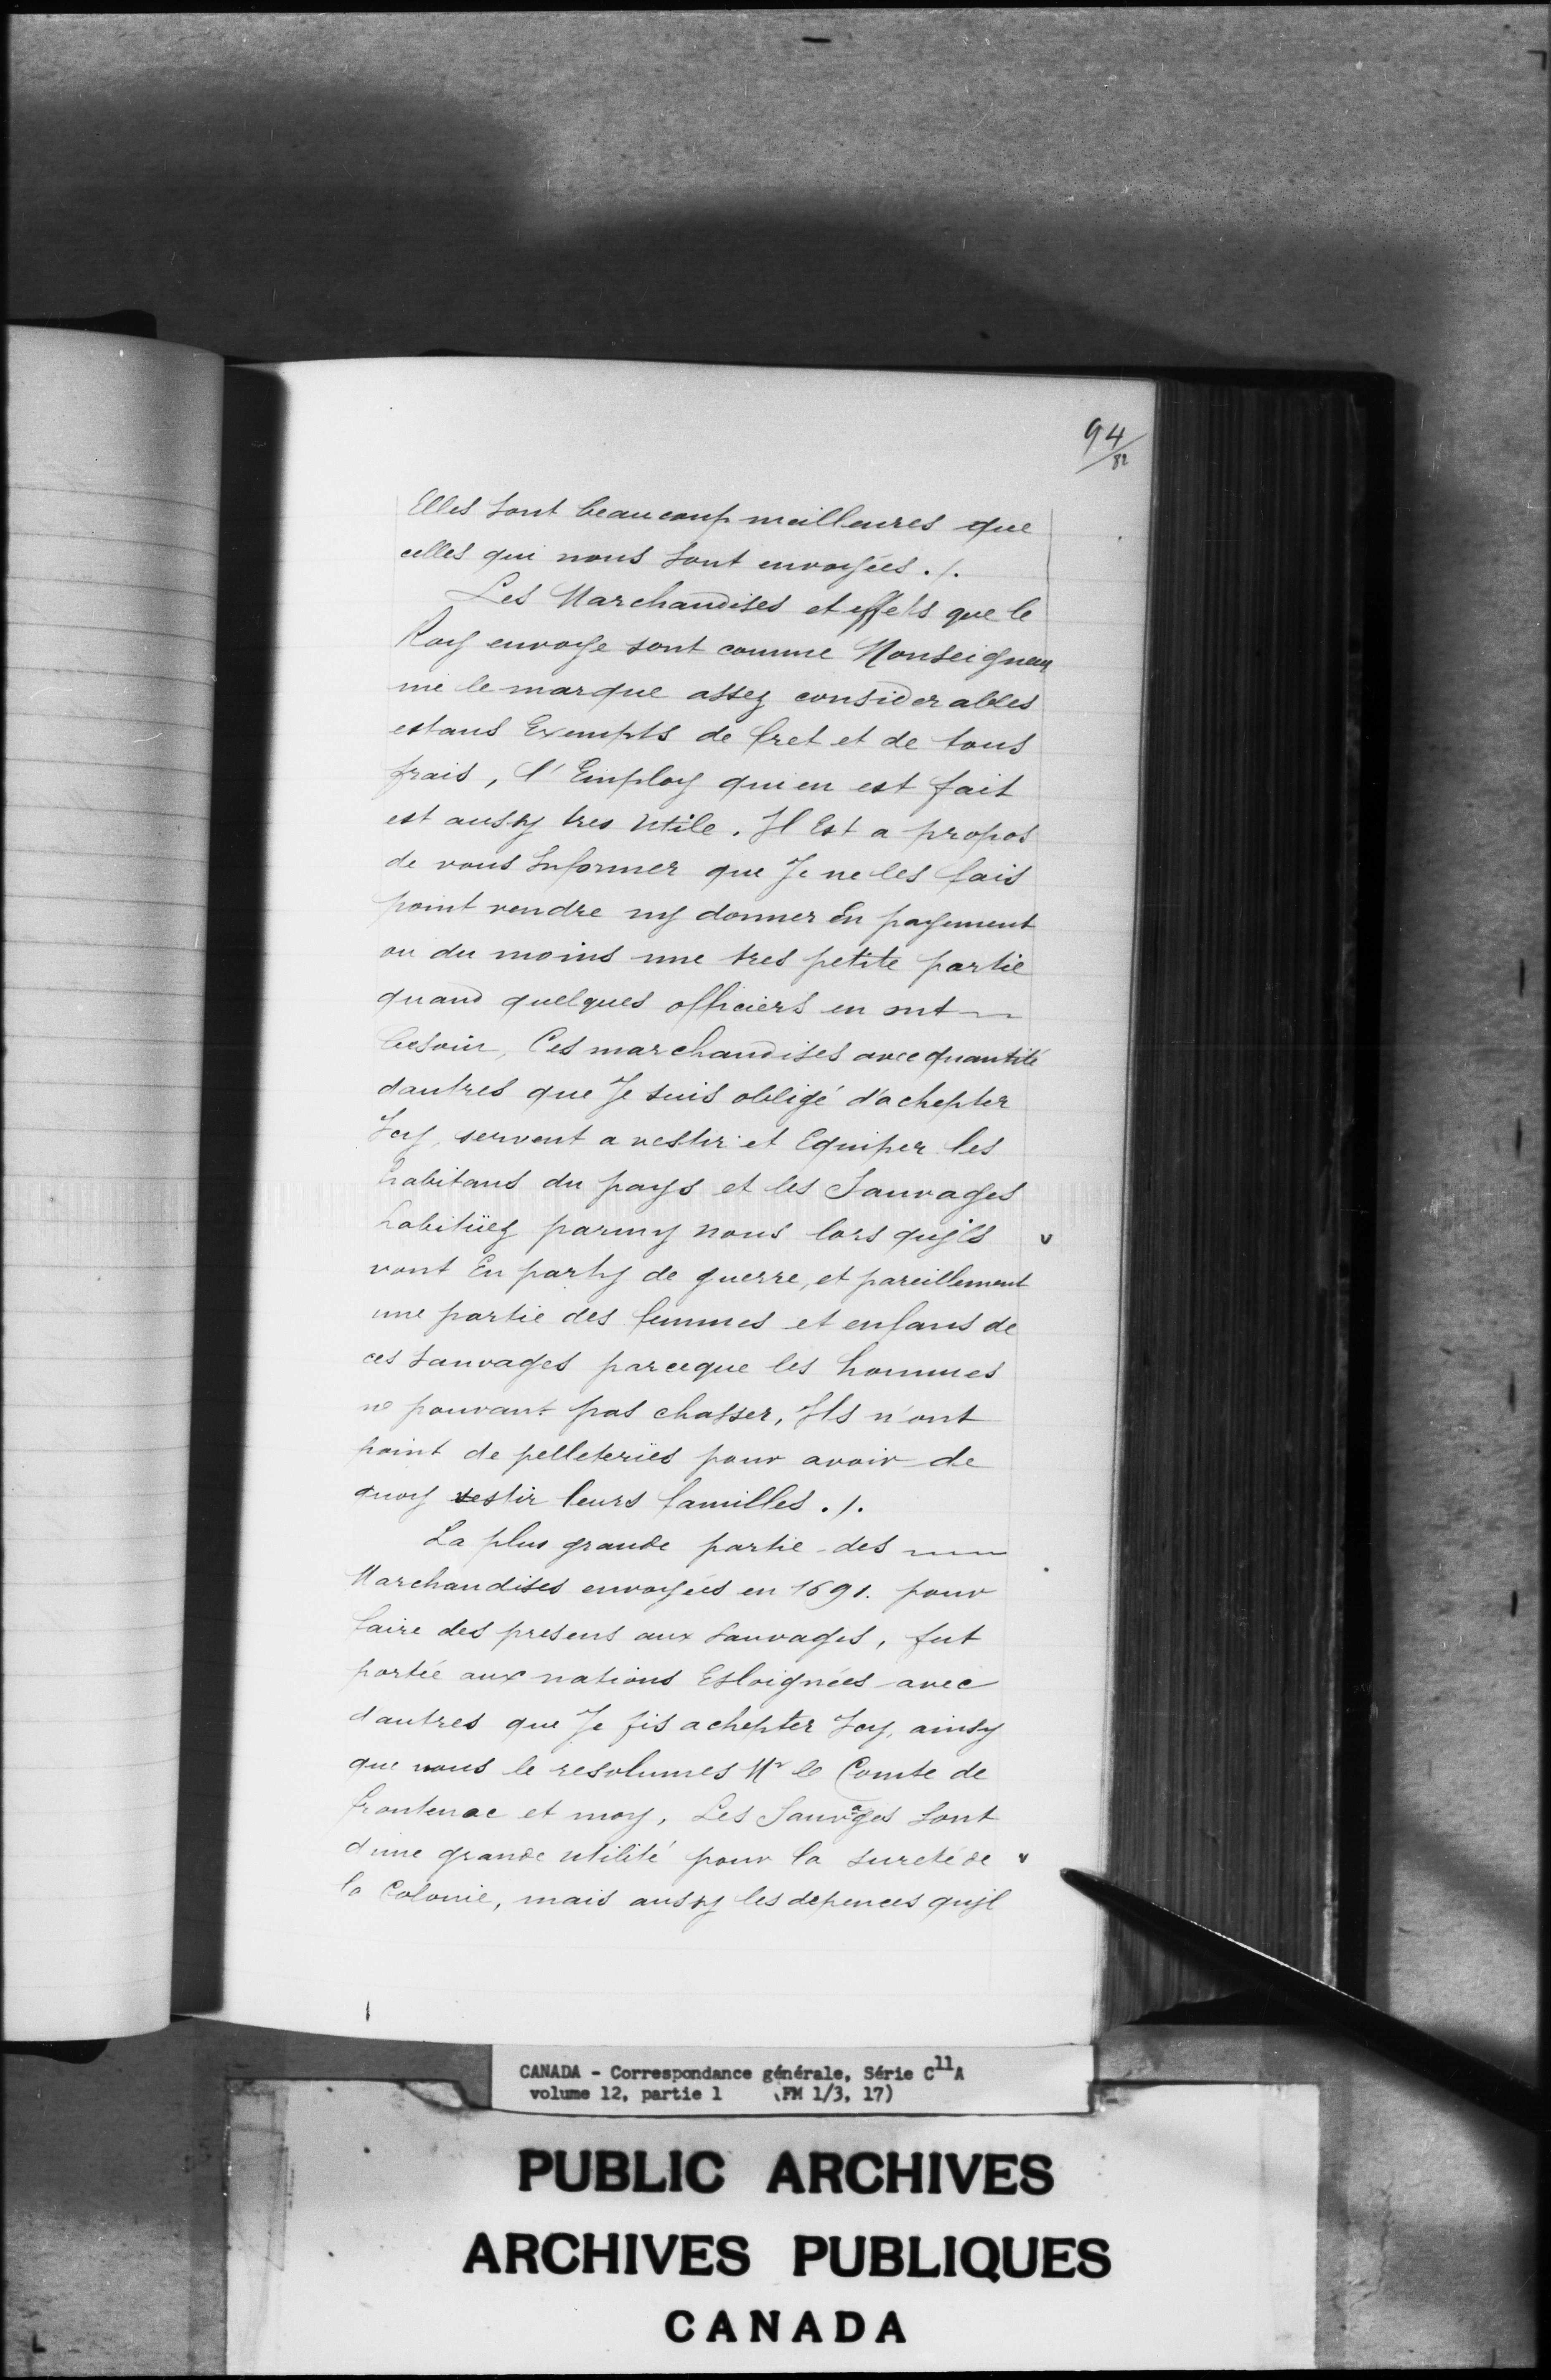 94/82
Elles sont beaucoup meilleures que
celles qui nous sont envoyées ./.
Les Marchandises et effets que le
Roy envoye sont comme Monseigneur
me le marque assez considerables
estans Exempts de fret et de tous
frais, l'Employ qui en est fait
est aussy tres Utile. Il Est a propos
de vous Informer que Je ne les fais
point vendre ny donner En payement
ou du moins une tres petite partie
quand quelques officiers en ont
besoin, Ces marchandises avec quantité
dautres que Je suis obligé d'achepter
Icy, servent a vestir et Equiper les
habitans du pays et les Sauvages
habitüez parmy nous lors qu'jls v
vont En party de guerre, et pareillement
une partie des femmes et enfans de
ces sauvages parceque les hommes
ne pouvant pas chasser, Ils n'ont
point de pelleteries pour avoir de
quoy vestir leurs familles ./.
La plus grande partie des
Marchandises envoyées en 1691. pour
faire des presens aux sauvages, fut
portée aux nations Esloignées avec
dautres que Je fis achepter Icy, ainsy
que nous le resolumes Mr le Comte de
frontenac et moy, Les Sauvages sont
d'une grande utilité pour la sureté de v
la Colonie, mais aussy les depences qujl
CANADA - Correspondance générale, Série C11A
volume 12, partie 1 (FM 1/3, 17)
PUBLIC ARCHIVES
ARCHIVES PUBLIQUES
CANADA